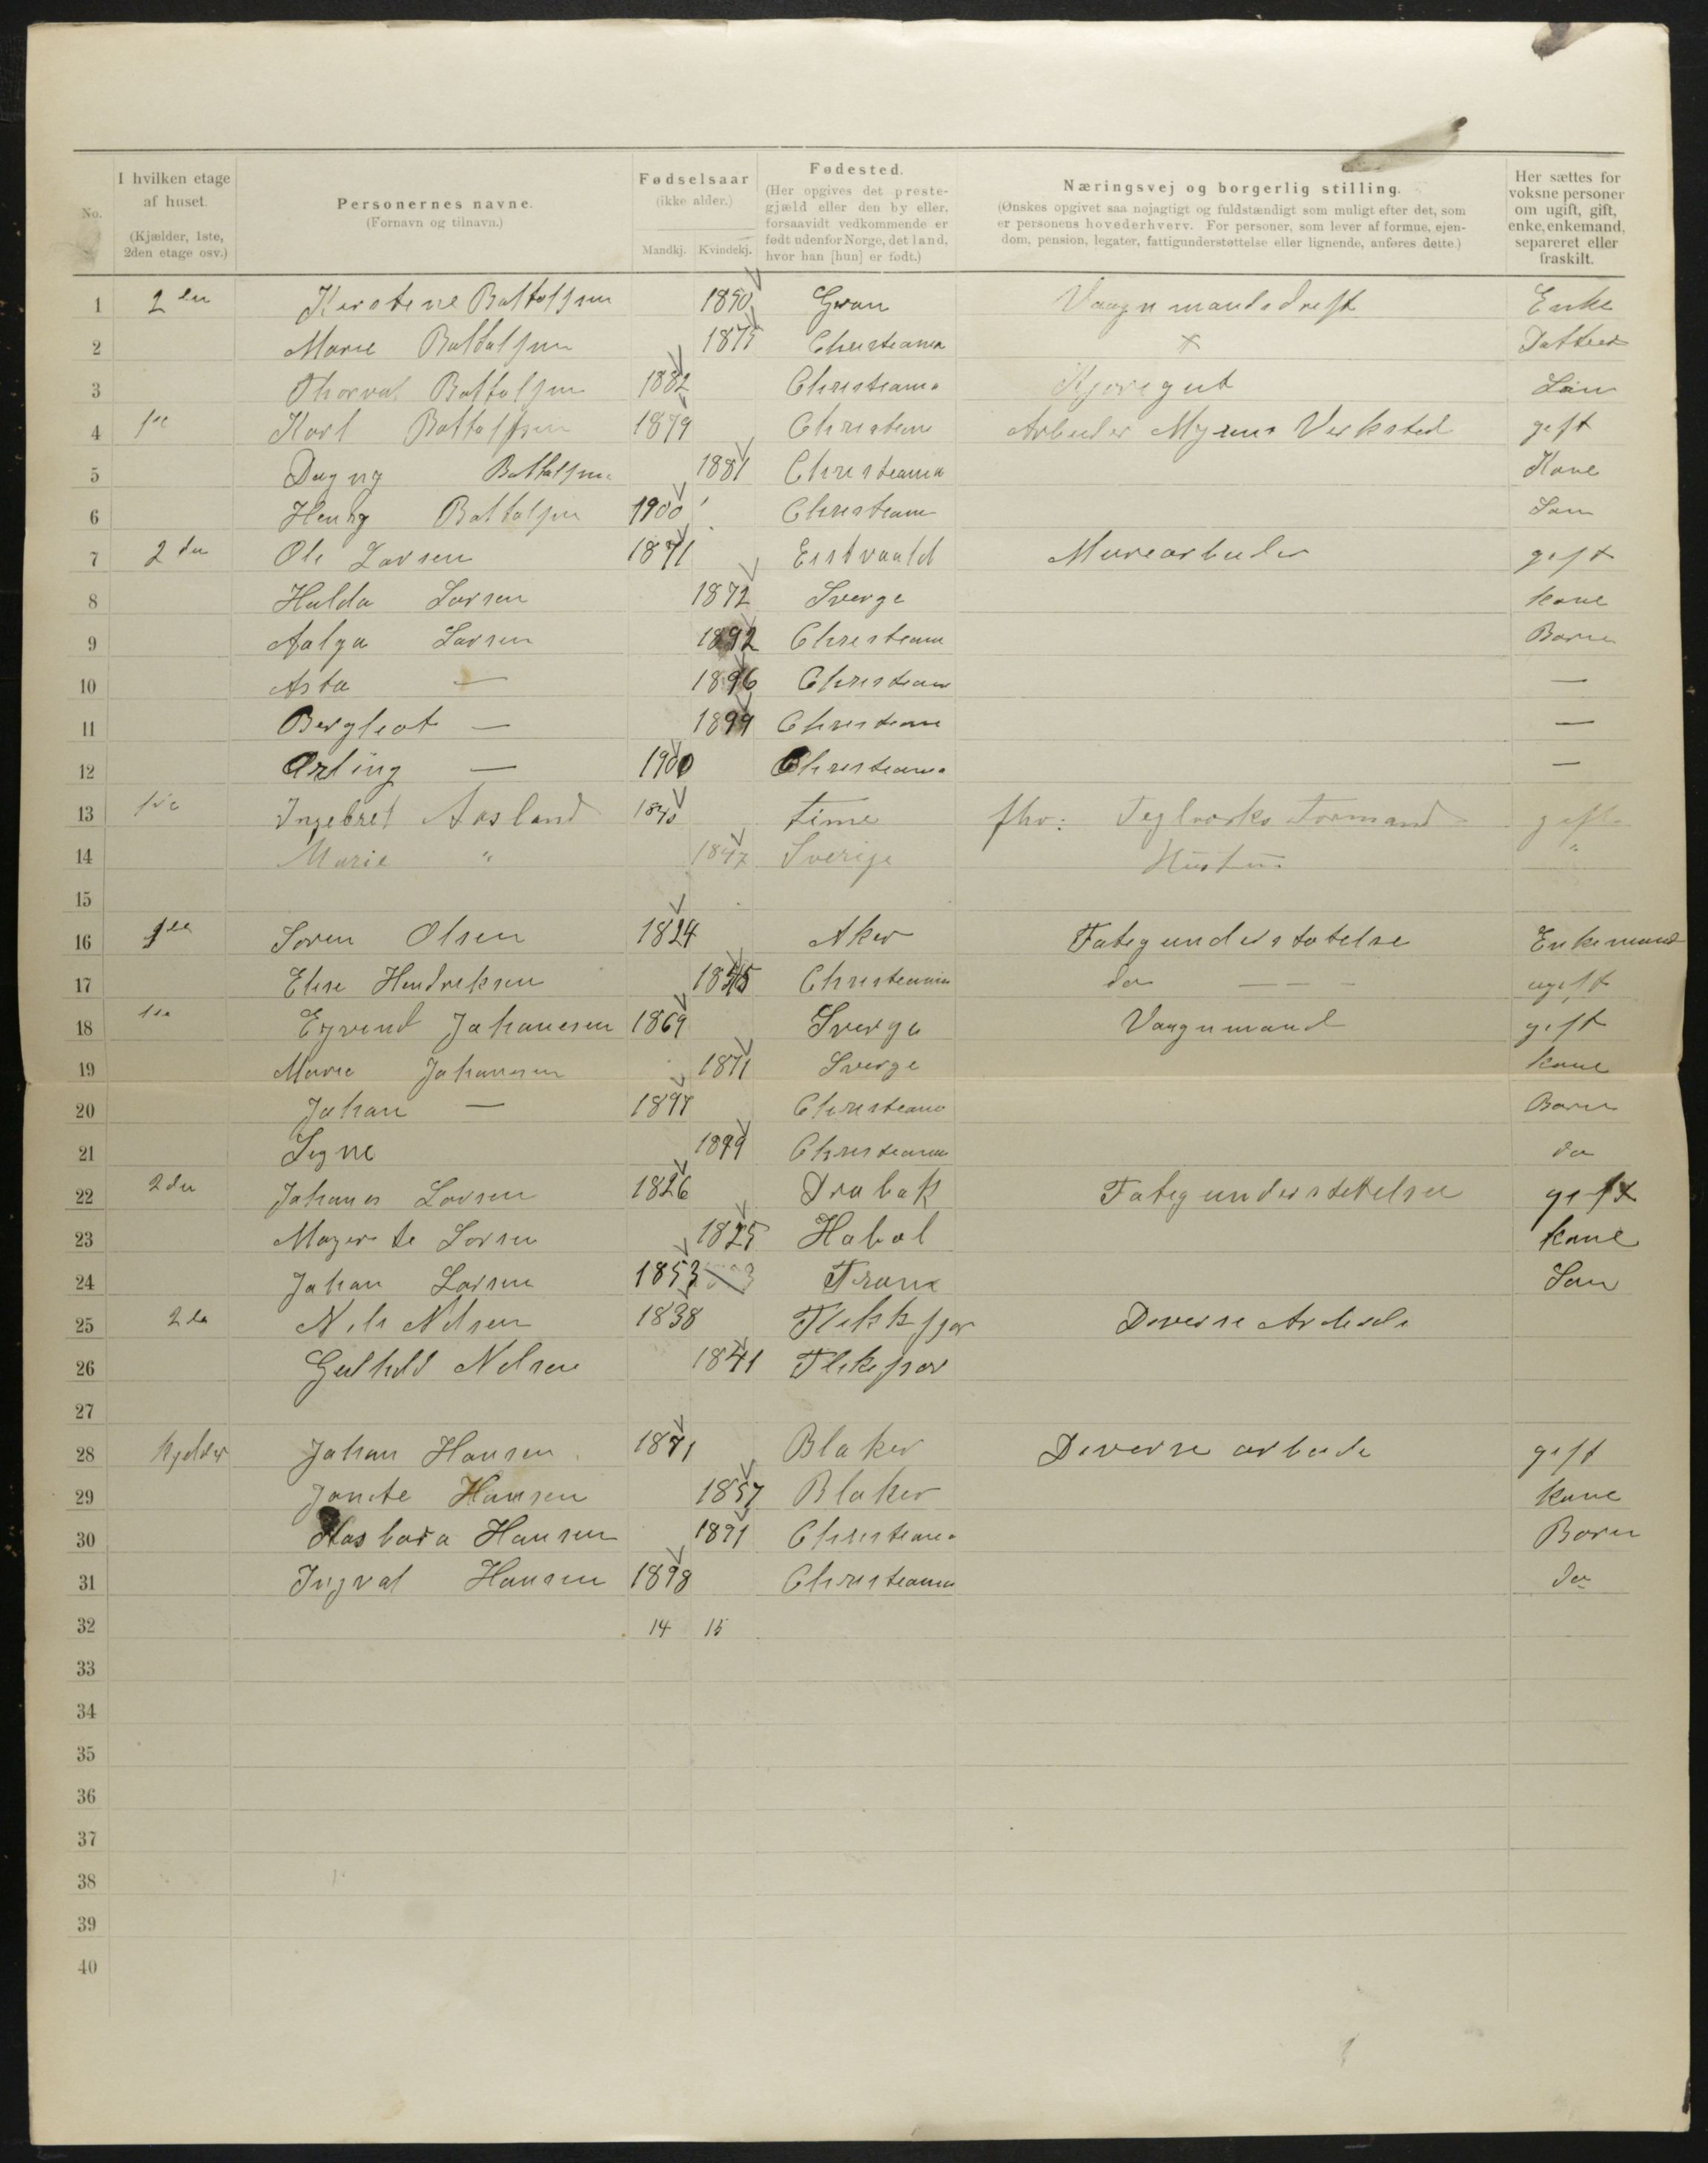 No.
I hvilken etage af huset. (Kjælder, 1ste, 2den etage osv.)
Personernes navne. (Fornavn og tilnavn.)
Fødselsaar (ikke alder.) Mandkj. Kvindekj.
Fødested. (Her opgives det prestegjæld eller den by eller, forsaavidt vedkommende er født udenfor Norge, det land, hvor han [hun] er født.)
Næringsvej og borgerlig stilling. (Ønskes opgivet saa nøjagtigt og fuldstændigt som muligt efter det, som er personens hovederhverv. For personer, som lever af formue, ejendom, pension, legater, fattigunderstøttelse eller lignende, anføres dette.)
Her sættes for voksne personer om ugift, gift, enke, enkemand, separeret eller fraskilt.
1 2den Kirstine Bottolfsen 1850 Gran Vaagnmandsdreft Enke
2 Marie Bottolfsen 1875 Christiania Datter
3 Thorval Bottolfsen 1882 Christiania Kjøregut Søn
4 1ste Karl Bottolfsen 1879 Christiania Arbeider Myrens Verksted gift
5 Dagny Bottolfsen 1881 Christiania Kone
6 Henry Bottolfsen 1900 Christiania Søn
7 2den Ole Larsen 1871 Eidsvaald Murearbeider gift
8 Hulda Larsen 1872 Sverge kone
9 Larsen 1892 Christiania Barn
10 Asta — 1896 Christiania —
11 Bergleot — 1899 Christiania —
12 Arling — 1900 Christiania —
13 1ste Ingebret Aasland 1840 Time fhv: Teglværks Formand gift
14 Marie " 1847 Sverige Hustru "
15
16 1ste Søren Olsen 1824 Aker Fatigunderstøtelse Enkemand
17 Elise Hendreksen Christiania do — — — ugift
18 1ste Eyvind Johanesen 1869 Sverge Vaagnmand gift
19 Marie Johanesen 1871 Sverge kone
20 Johan — 1897 Christiania Barn
21 Signe 1899 Christiania do
22 2den Johanes Larsen 1826 Drøbak Fatigunderstettelse gift
23 Magrete Larsen 1825 Høbøl kone
24 Johan Larsen 1853 Søn
25 2den Nils Nilsen 1838 Flekkfjor Diverse Arbeide
26 Gulhild Nilsen 1841 Flekefjor
27
28 kjelder Johan Hansen 1871 Blaker Diverse arbeide gift
29 Hansen 1857 Blaker kone
30 Hansen 1891 Christiania Barn
31 Ingval Hansen 1898 Christiania do
32 14 15
33
34
35
36
37
38
39
40